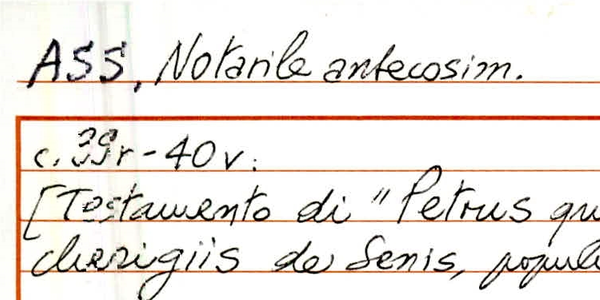 ASS, Notarile antecosim.
c. 39r-40v:
[Testamento di "Petrus qu
cherigiis de Senis, popul